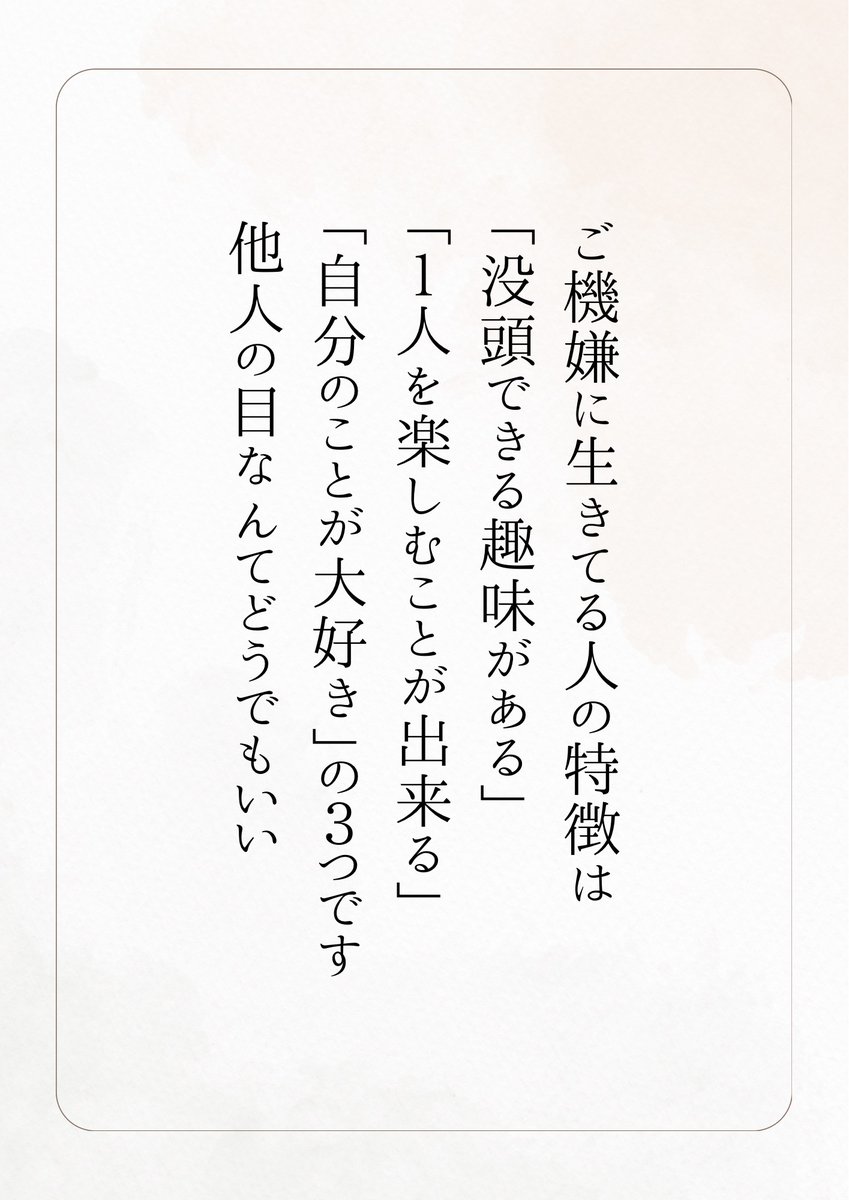 ご機嫌に生きてる人の特徴は
「没頭できる趣味がある」
「1人を楽しむことが出来る」
「自分のことが大好き」の3つです
他人の目なんてどうでもいい